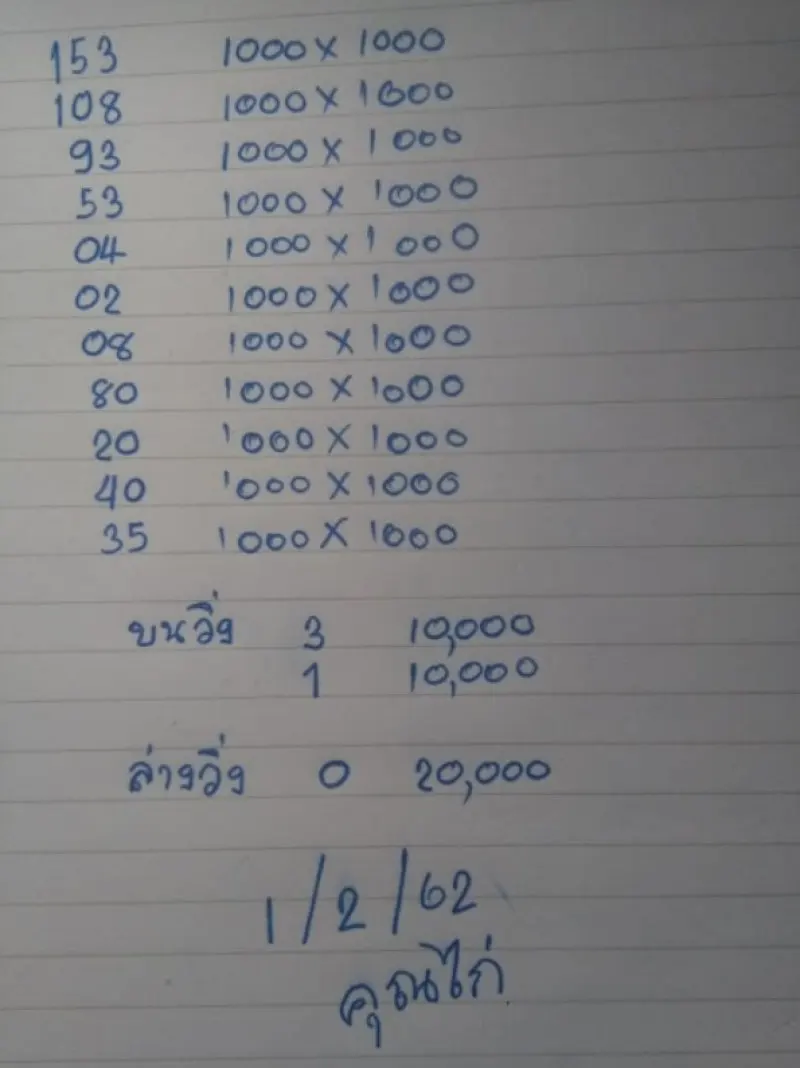 153 1000 x 1000
108 1000 x 1000
93 1000 x 1000
53 1000 x 1000
04 1000 x 1000
02 1000 x 1000
08 1000 x 1000
80 1000 x 1000
20 1000 x 1000
40 1000 x 1000
35 1000 x 1000
บนวิ่ง 3 10,000
1 10,000
ล่างวิ่ง 0 20,000
1/2/62
คุณไก่